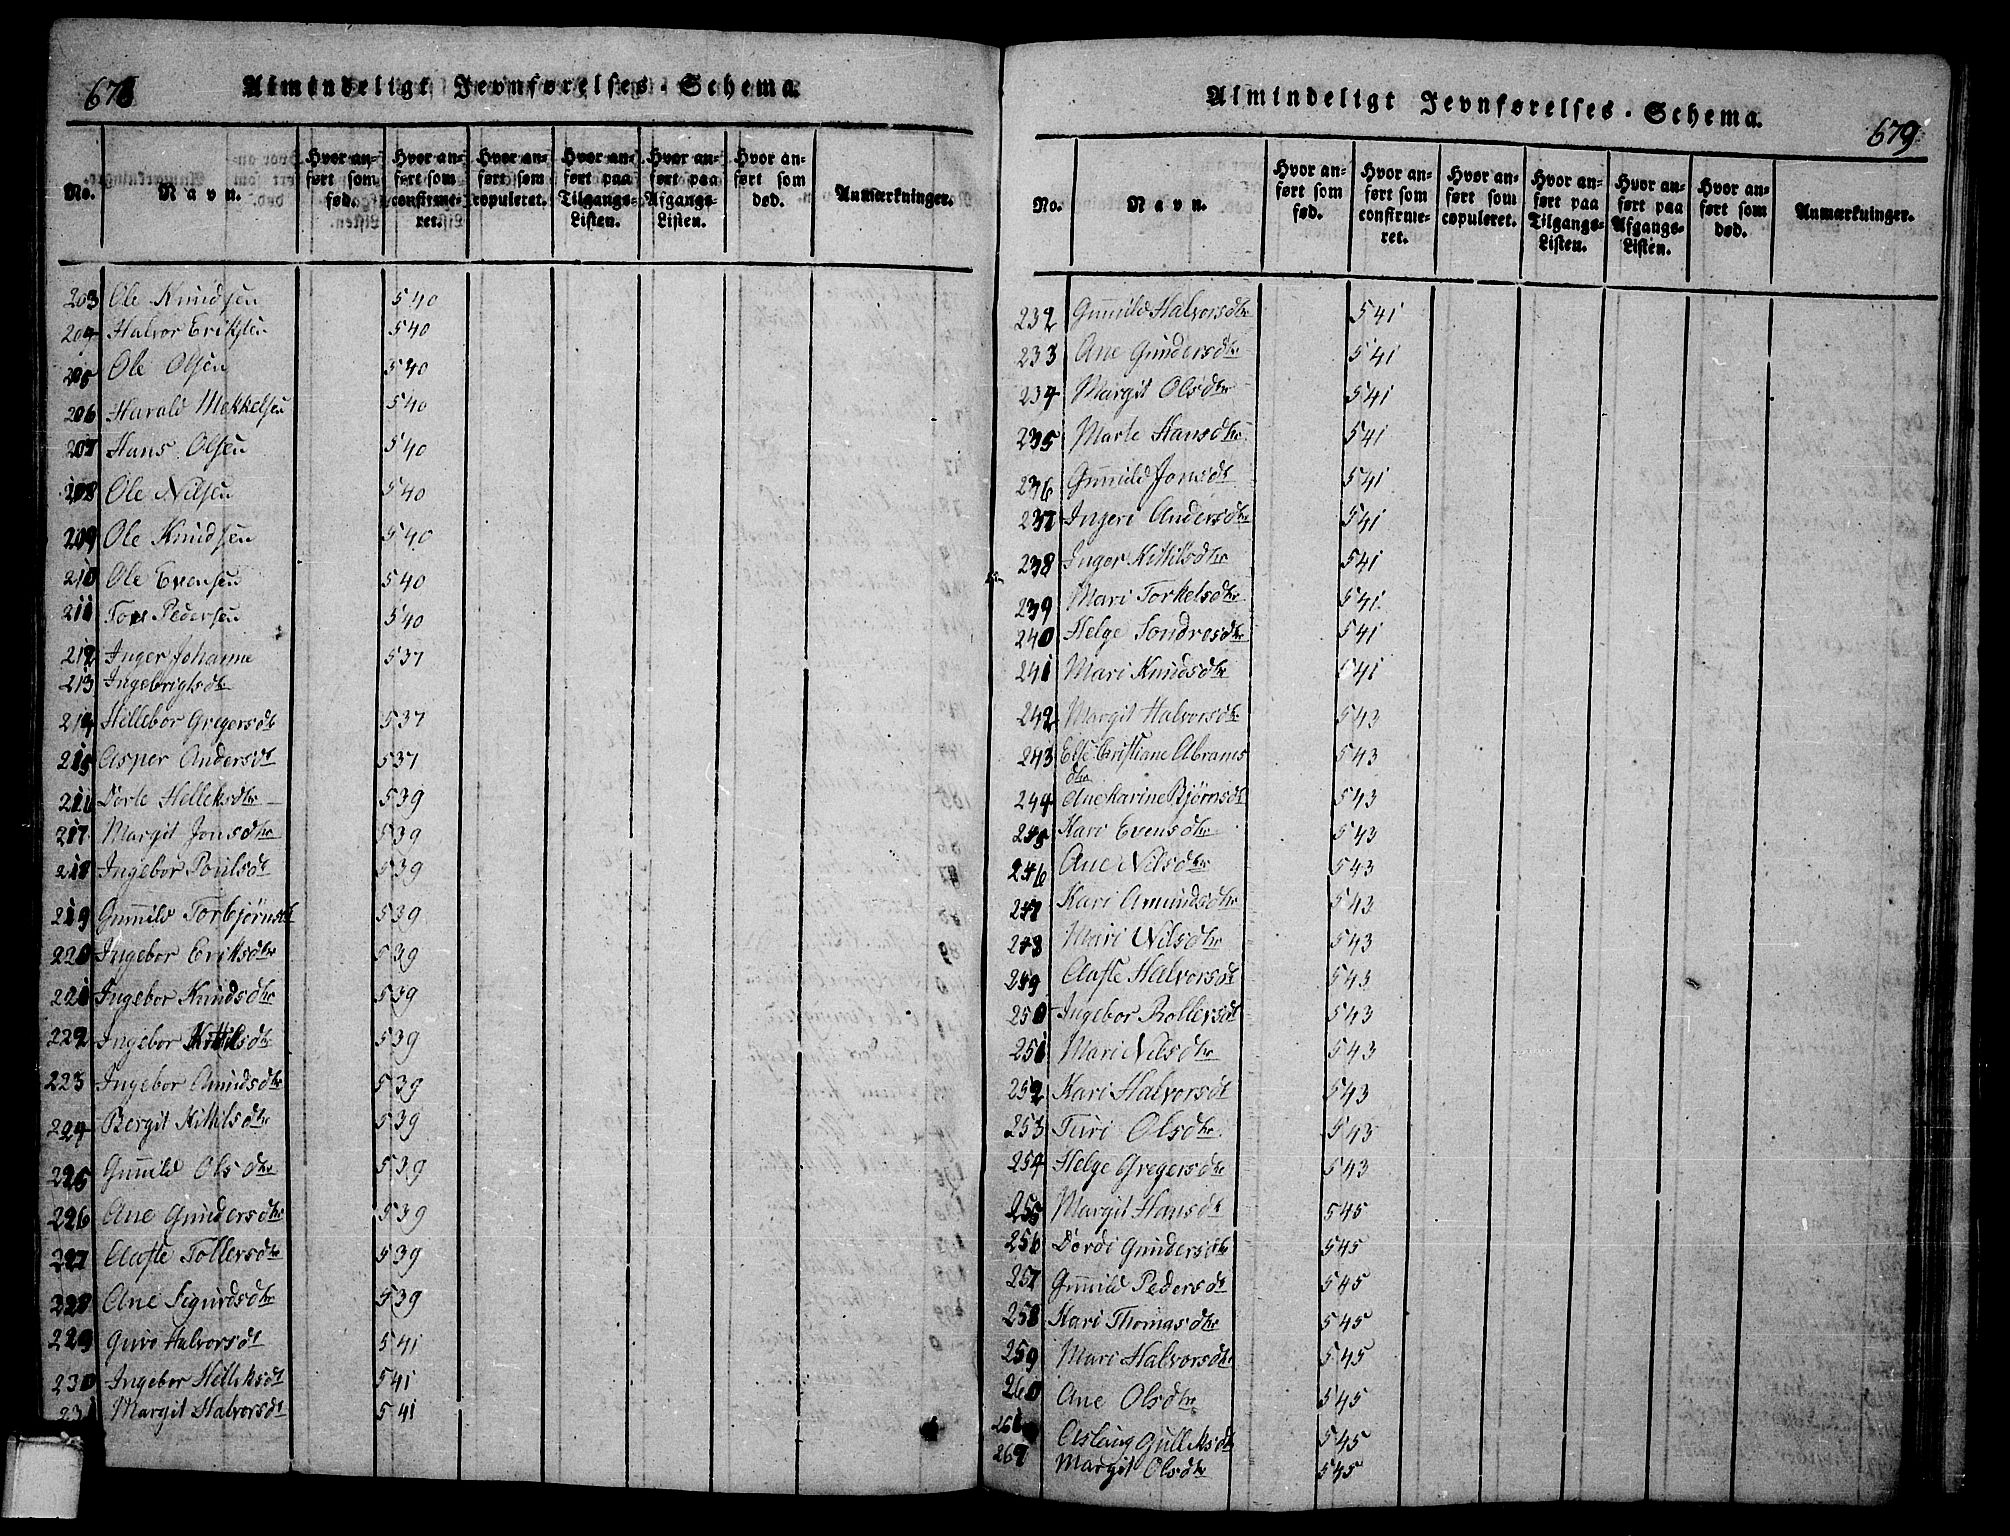 678
Almindeligt Jevnførelses-Schema.
No.
Navn.
Hvor anført som fød.
Hvor anført som confirmeret.
Hvor anført som copuleret.
Hvor anført paa Tilgangs-Listen.
Hvor anført paa Afgangs-Listen.
Hvor anført som død.
Anmærkninger.
203 Ole Knudsen 540
204 Halvor Eriksen 540
205 Ole Olsen 540
206 Harald Mekkelsen 540
207 Hans Olsen 540
208 Ole Nilsen 540
209 Ole Knudsen 540
210 Ole Evensen 540
211 Tov Pedersen 540
212 Inger Johanne 537
213 Ingebrigtsdtr
214 Hellebor Gregersdt 537
215 Asper Andersdt 537
216 Dorte Helleksdtr 539
217 Margit Jonsdtr 539
218 Ingebor Poulsdt 539
219 Gunnild Torbjørnsdt 539
220 Ingebor Eriksdtr 539
221 Ingebor Knudsdtr 539
222 Ingebor Kittilsdtr 539
223 Ingebor Amundsdtr 539
224 Bergit Kittilsdtr 539
225 Gunnild Olsdtr 539
226 Ane Gundersdtr 539
227 Aaste Tollersdtr 539
228 Ane Sigurdsdtr 539
229 Guro Halvorsdt 541
230 Ingebor Helleksdt 541
231 Margit Halvorsdt 541
Almindeligt Jevnførelses-Schema.
679
No.
Navn.
Hvor anført som fød.
Hvor anført som confirmeret.
Hvor anført som copuleret.
Hvor anført paa Tilgangs-Listen.
Hvor anført paa Afgangs-Listen.
Hvor anført som død.
Anmærkninger.
232 Gunnild Halvorsdtr 541
233 Ane Gundersdtr 541
234 Margit Olsdtr 541
235 Marte Hansdtr 541
236 Gunnild Jonsdt 541
237 Injeri Andersdtr 541
238 Inger Kittilsdtr 541
239 Mari Torkelsdtr 541
240 Helge Sondresdtr 541
241 Mari Knudsdtr 541
242 Margit Halvorsdtr 543
243 Else Christiane Abrams 543
dtr
244 Ane Karine Bjørnsdt 543
245 Kari Evensdtr 543
246 Ane Nilsdtr 543
247 Kari Amundsdtr 543
248 Mari Nilsdtr 543
249 Aaste Halvorsdt 543
250 Ingebor Rollevsdt 543
251 Mari Nilsdtr 543
252 Kari Halvorsdt 543
253 Turi Olsdtr 543
254 Helge Gregersdtr 543
255 Margit Hansdt 545
256 Dordi Gundersdtr 545
257 Gunnild Pedersdt 545
258 Kari Thomasdtr 545
259 Mari Halvorsdtr 545
260 Ane Olsdtr 545
261 Aslaug Gulleksdtr 545
262 Margit Olsdtr 545